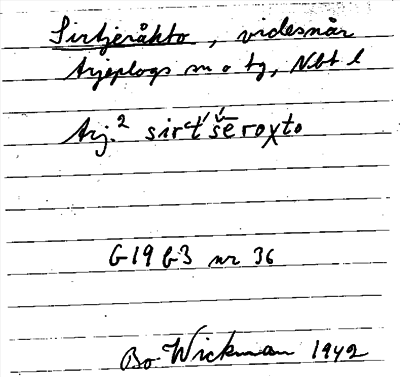 Sirtjeråkto, videsnår
Arjeplogs sn o tg, Nbt l
Arj.² sirt́'šēroχto
G19 b3 nr 36
Bo Wickman 1942